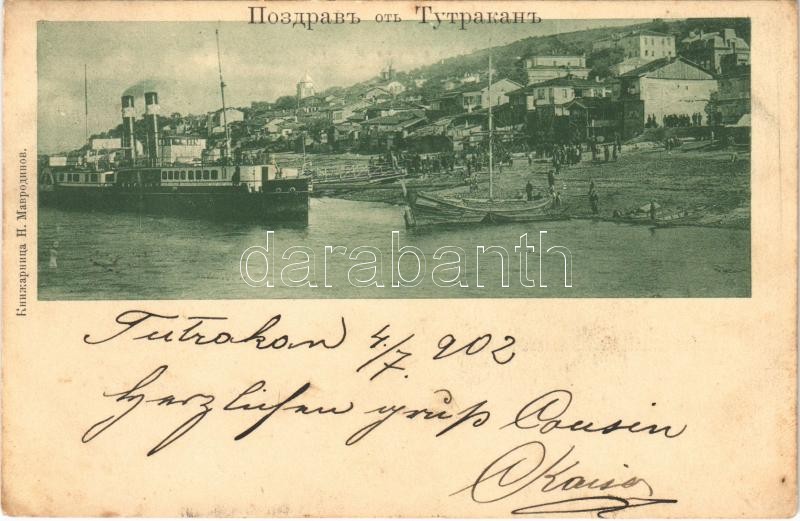 Поздравъ отъ Тутраканъ
Книжарница Н. Мавродиновъ.
darabanth
Tutrakan 4/7. 902
Herzlichen gruß Cousin